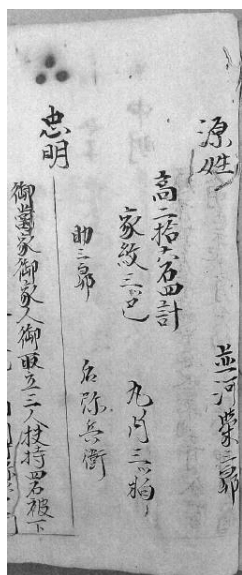 源姓 並河栄三郎
高二拾六石四計
家紋三ツ巴 丸内三ツ柏
助三郎 名弥兵衛
忠明
御当家御家人御取立三人扶持四石被下